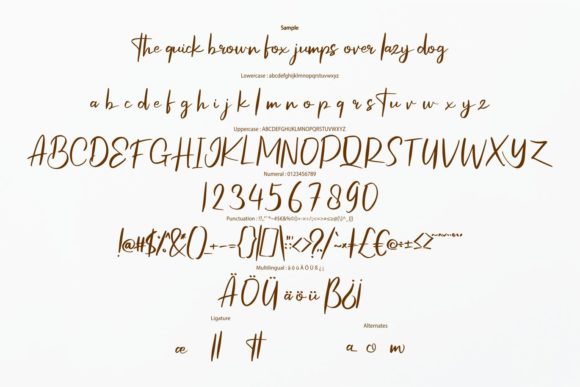 Sample
the quick brown fox jumps over lazy dog
Lowercase : abcdefghijklmnopqrstuvwxyz
a b c d e f g h i j k l m n o p q r s t u v w x y z
Uppercase : ABCDEFGHIJKLMNOPQRSTUVWXYZ
ABCDEFGHIJKLMNOPQRSTUVWXYZ
Numeral : 0123456789
1234567890
Punctuation :
Multilingual : ä ö ü Ä Ö Ü ß ¿ ¡
ÄÖÜ äöü ß¿¡
Ligature
Alternates
æ ll tt
a o m